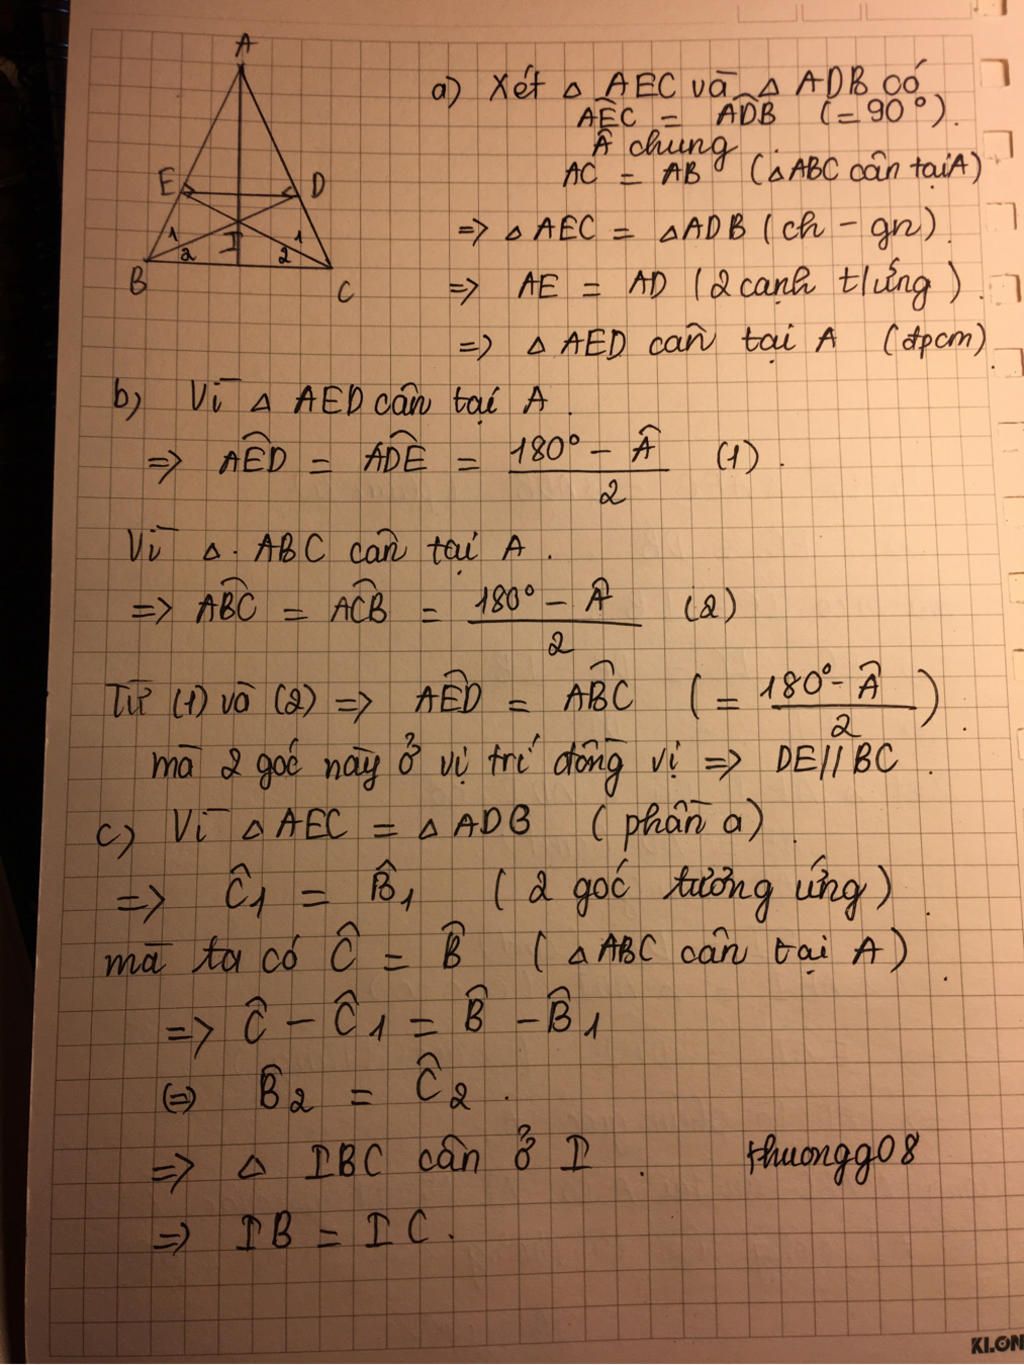 A
E
D
1
1
2
I
2
B
C
a) Xét △ AEC và △ ADB có
AÊC = AD̂B (= 90°).
Â chung
AC = AB (△ABC cân tại A)
=> △AEC = △ADB (ch - gn)
=> AE = AD (2 cạnh t/ứng)
=> △ AED cân tại A (đpcm)
b) Vì △ AED cân tại A.
=> AÊD = AD̂E = (180° - Â)/2 (1).
Vì △ ABC cân tại A.
=> AB̂C = AĈB = (180° - Â)/2 (2)
Từ (1) và (2) => AÊD = AB̂C (= (180° - Â)/2).
mà 2 góc này ở vị trí đồng vị => DE//BC.
c) Vì △AEC = △ADB (phần a)
=> Ĉ1 = B̂1 (2 góc tương ứng).
mà ta có Ĉ = B̂ (△ABC cân tại A).
=> Ĉ - Ĉ1 = B̂ - B̂1
(=) B̂2 = Ĉ2.
=> △ IBC cân ở I. thuongg08
=> IB = IC.
KLON